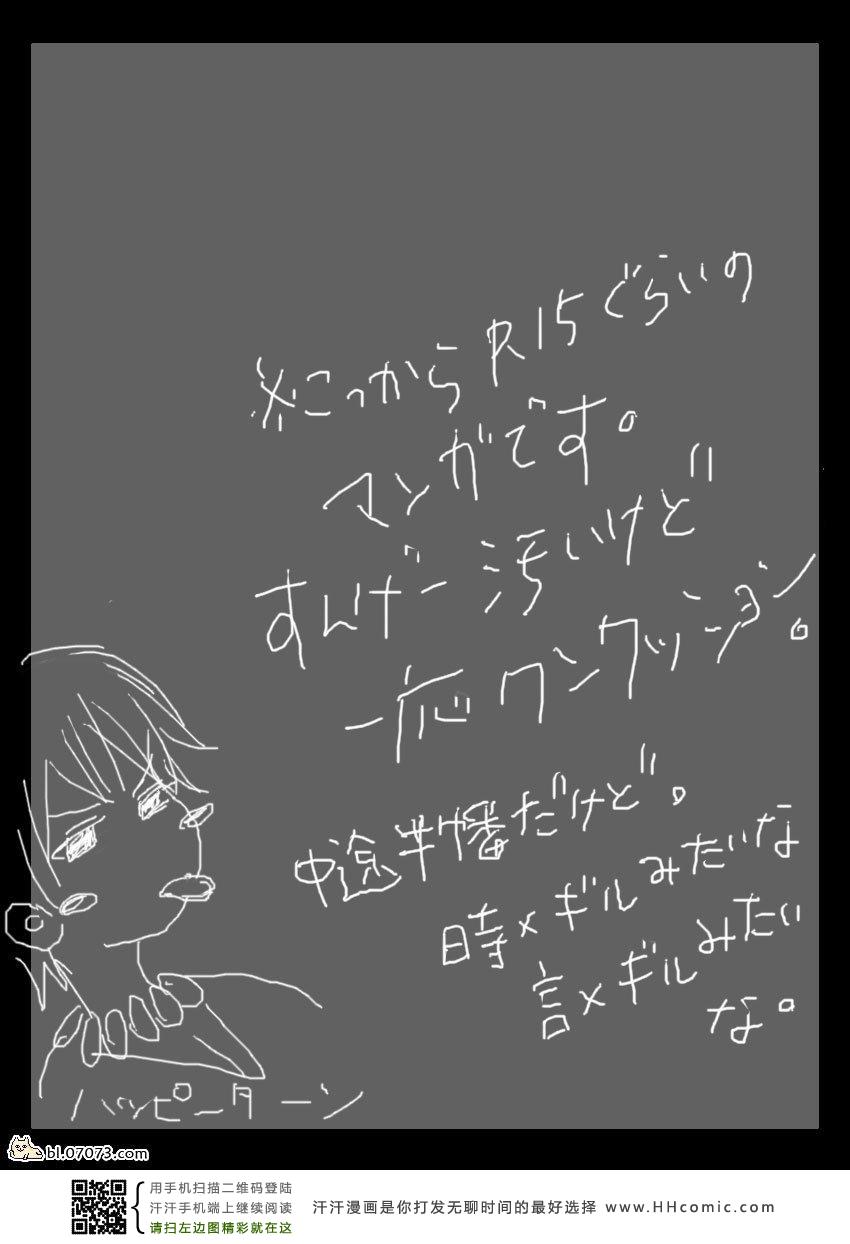 こっから R15ぐらいの
マンガです。
すんげー汚いけど
一応ワンクッション。
中途半端だけど。
時×ギルみたいな
言×ギルみたい
な。
ハッピーターン
bl.07073.com
用手机扫描二维码登陆
汗汗手机端上继续阅读
请扫左边图精彩就在这
汗汗漫画是你打发无聊时间的最好选择 www.HHcomic.com